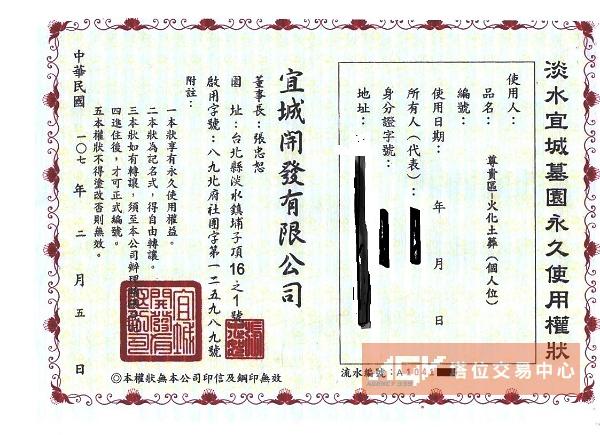 淡水宜城墓園永久使用權狀
使用人：
品名： 尊貴區-火化土葬（個人位）
編號：
使用日期： 年 月 日
所有人（代表）：
身分證字號：
地址：
流水編號：A1041
宜城開發有限公司
董事長：張忠恕
園 址：台北縣淡水鎮埔子頂16之1號
啟用字號：八九北府社園字第一二五九八九號
附註：
一本狀享有永久使用權益。
二本狀為記名式，得自由轉讓。
三本狀如有轉讓，須至本公司辦理
四進住後，才可正式編號。
五本權狀不得塗改否則無效。
中華民國 一〇七 年 二 月 五 日
◎本權狀無本公司印信及鋼印無效
塔位交易中心